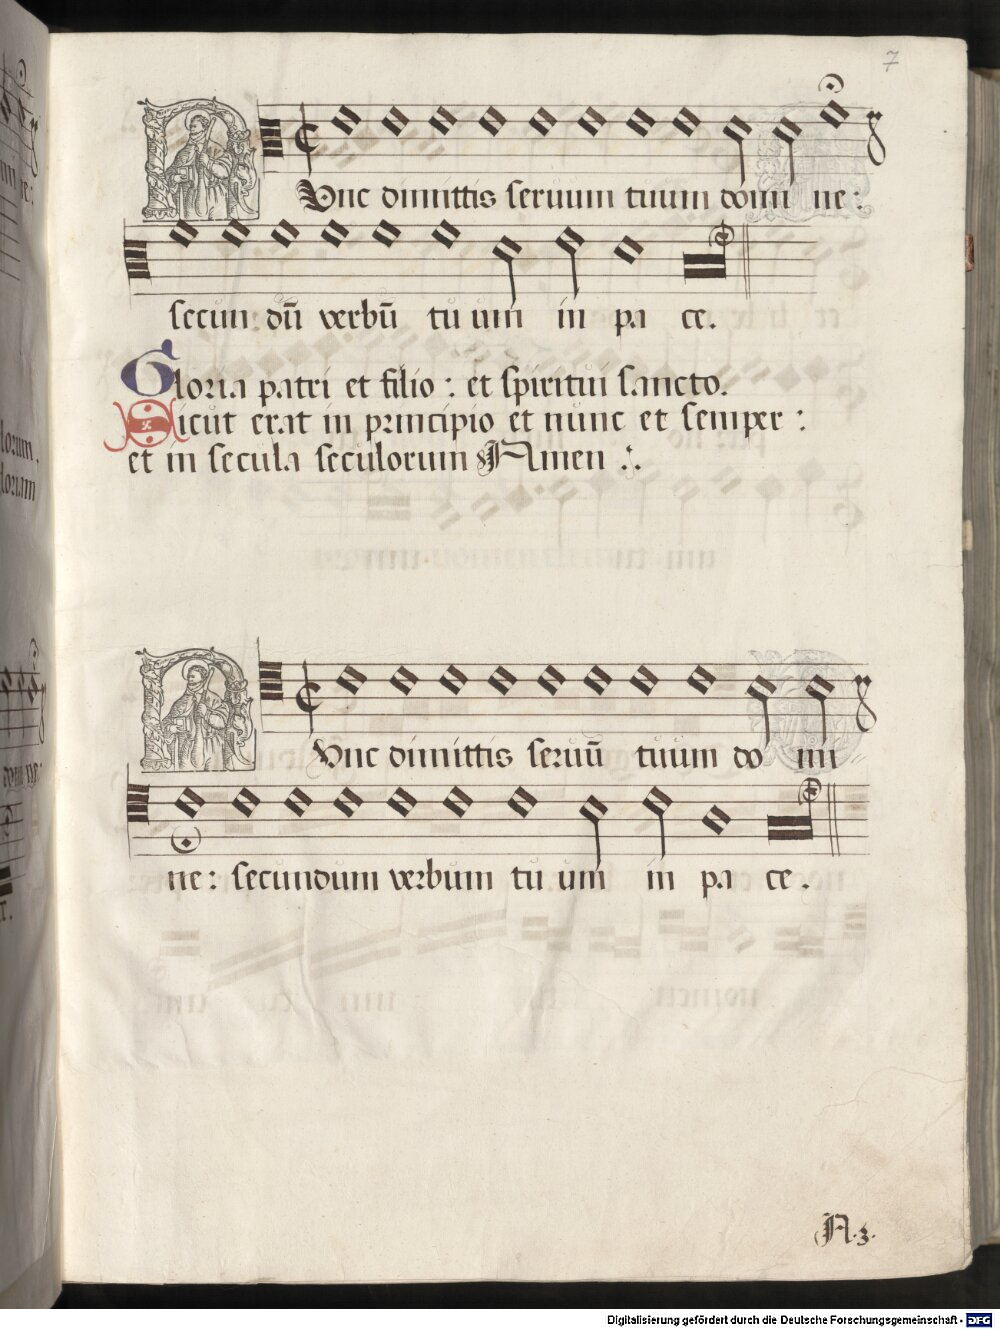 7
NUnc dimittis seruum tuum domi ne:
secun dū verbū tu um in pa ce.
Gloria patri et filio: et spiritui sancto.
Sicut erat in principio et nunc et semper:
et in secula seculorum Amen ∴
NUnc dimittis seruū tuum do mi
ne: secundum verbum tu um in pa ce.
A.3.
Digitalisierung gefördert durch die Deutsche Forschungsgemeinschaft - DFG